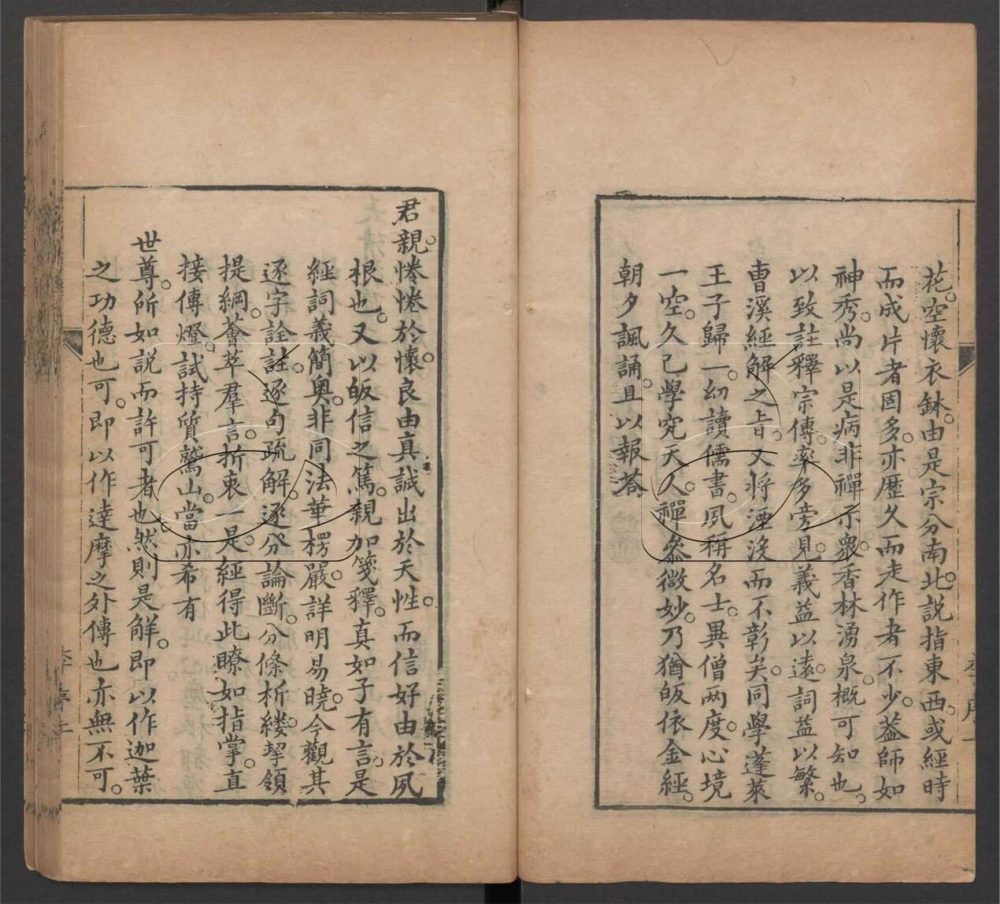 花空懷衣鉢由是宗分南北說指東西或經時
而成片者固多亦歷久而走作者不少葢師如
神秀尚以是病非禪示衆香林湧泉概可知也
以致註釋宗傳率多旁見義益以遠詞益以繁
曺溪經解之旨又將湮沒而不彰矣同學蓬萊
王子歸一幼讀儒書夙稱名士異僧兩度心境
一空久已學究天人禪叅微妙乃猶皈依金經
朝夕諷誦且以報荅
君親惓惓於懷良由真誠出於天性而信好由於夙
根也又以皈信之篤親加箋釋真如子有言是
經詞義簡奧非同法華楞嚴詳明易曉今觀其
逐字詮註逐句疏解逐分論斷分條析縷挈領
提綱薈萃羣言折衷一是經得此瞭如指掌直
接傳燈試持質鷲山當亦希有
世尊所如說而許可者也然則是解即以作迦葉
之功德也可即以作達摩之外傳也亦無不可
李序